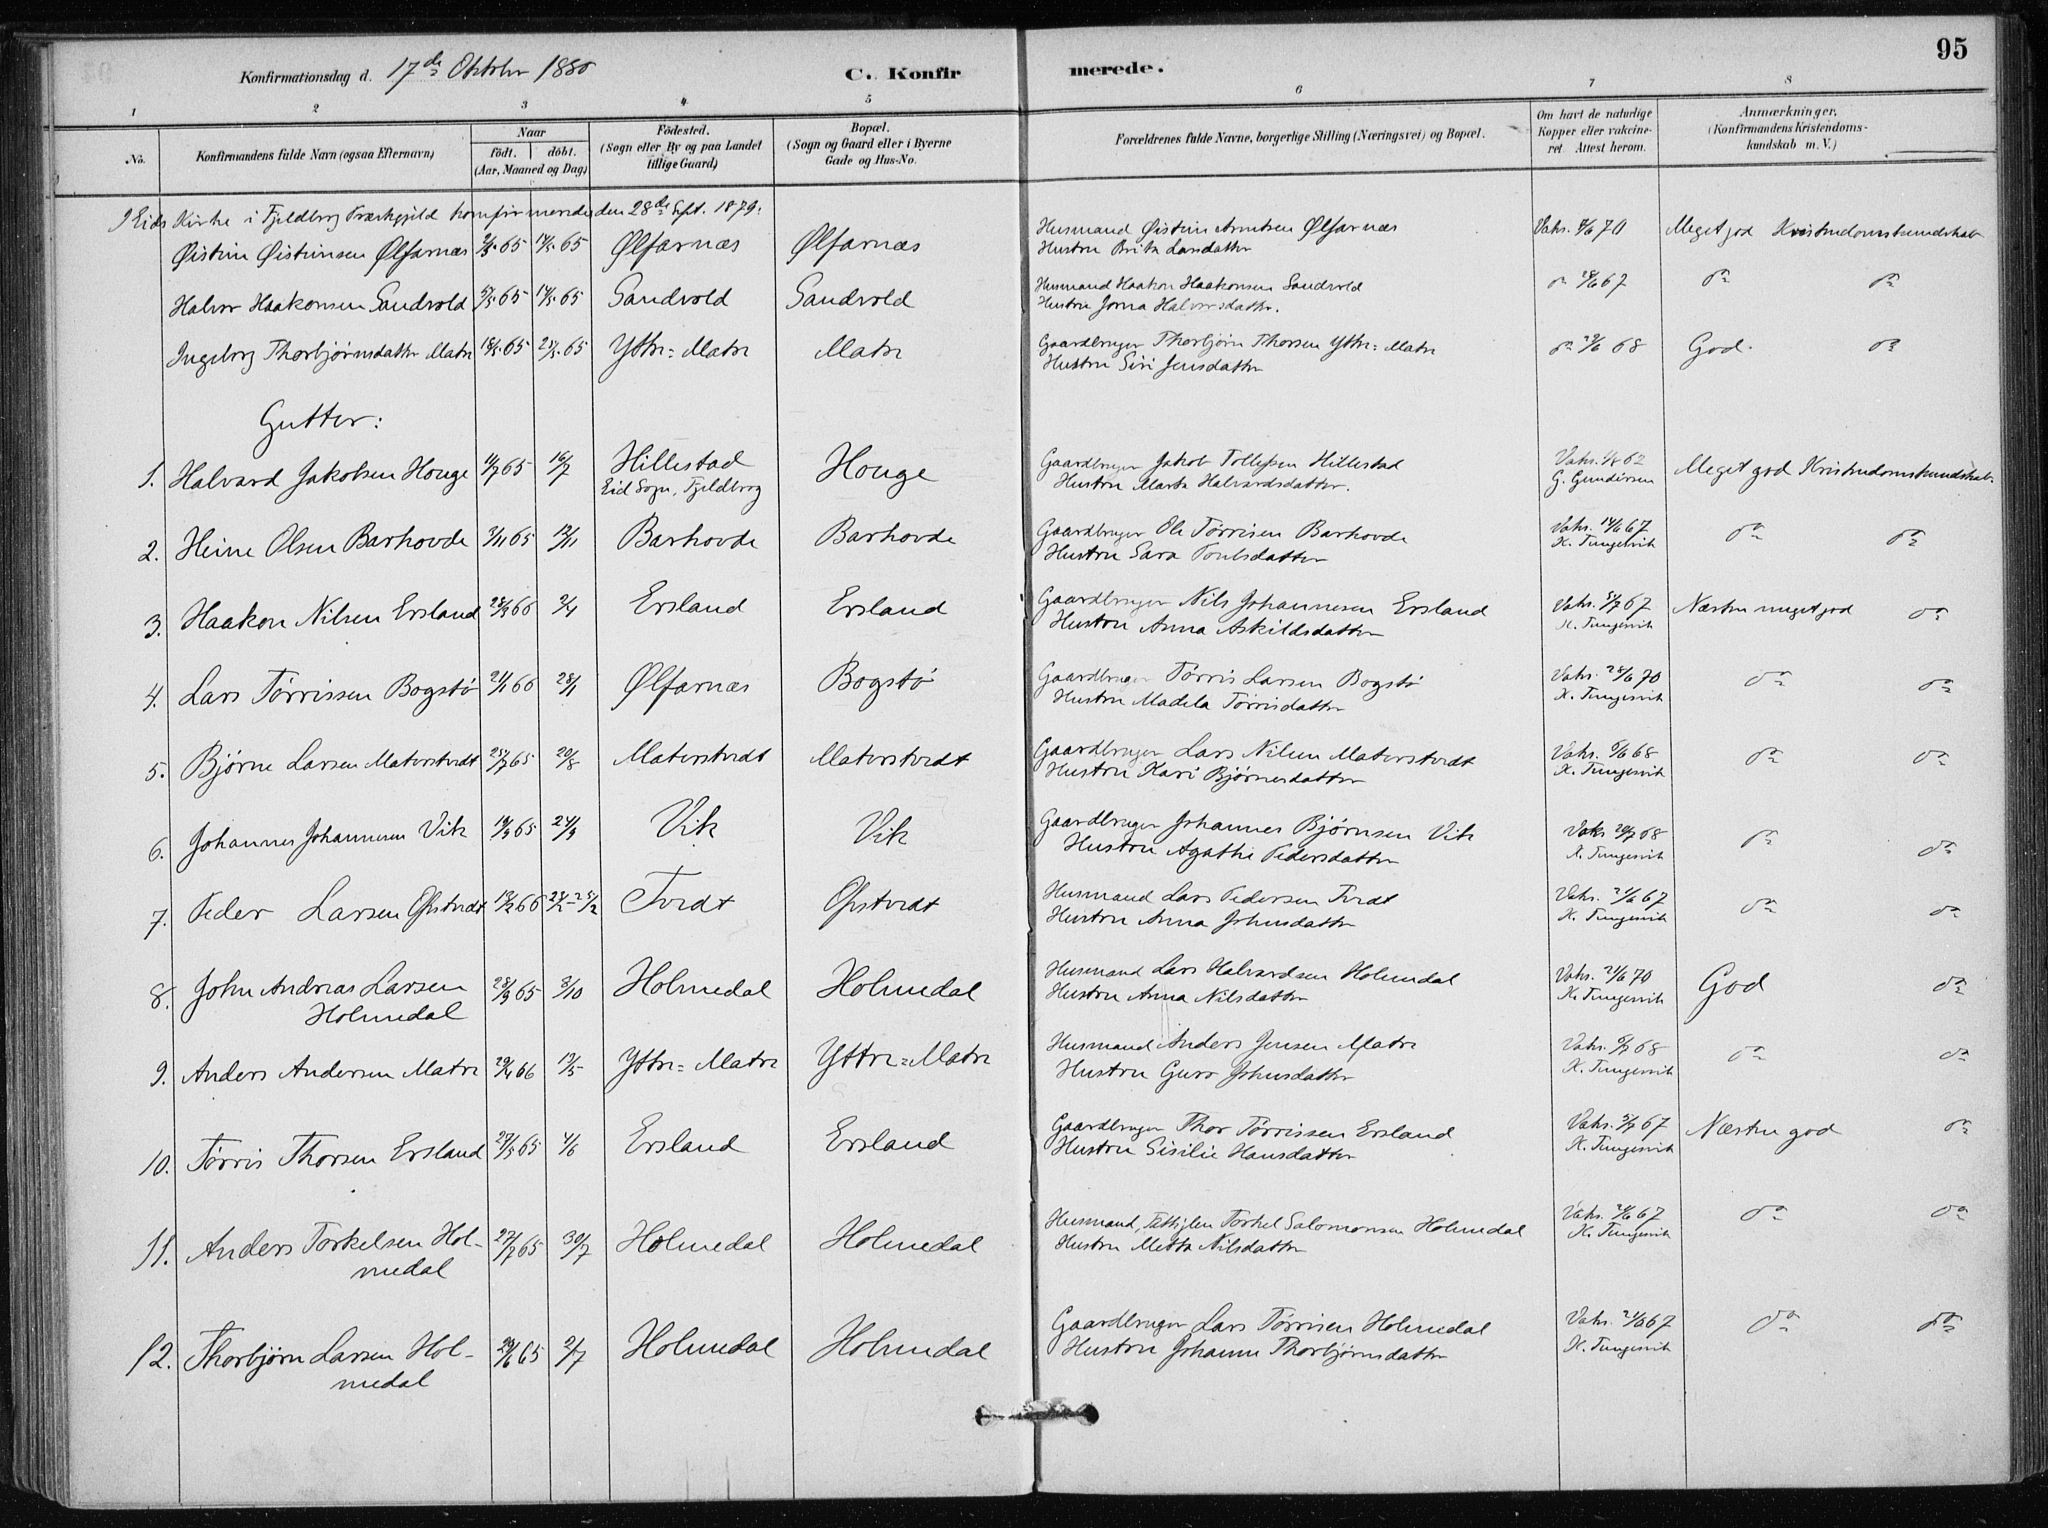 95
Konfirmationsdag d. 17de Oktober 1880 C. Konfirmerede.
1 2 3 4 5 6 7 8
No. Konfirmandens fulde Navn (ogsaa Efternavn) Naar födt. döbt. (Aar, Maaned og Dag) Födested. (Sogn eller By og paa Landet tillige Gaard) Bopæl. (Sogn og Gaard eller i Byerne Gade og Hus-No. Forældrenes fulde Navne, borgerlige Stilling (Næringsvei) og Bopæl. Om havt de naturlige Kopper eller vakcineret. Attest herom. Anmærkninger. (Konfirmandens Kristendomskundskab m. V.)
I Eids Kirke i Fjeldberg Præstegjeld konfirmerede den 28de Sept. 1879:
Øistein Øisteinsen Ølfarnæs 65 65 Ølfarnæs Ølfarnæs Husmand Øistein Arntsen Ølfarnæs Vaks. 70 Meget god Kristendomskundskab
Hustru Brita Larsdatter
Halvor Haakonsen Sandvold 65 14/5 65 Sandvold Sandvold Husmand Haakon Haakonsen Sandvold do 28/6 67 do do
Hustru Jorna Halvorsdatter.
Ingeborg Thorbjørnsdatter Matre 65 65 Yttre=Matre Matre Gaardbruger Thorbjørn Thorsen Yttre=Matre do 68 God. do
Hustru Siri Jensdatter
Gutter:
1. Halvard Jakobsen Houge 11/7 65 16/7 Hillestad Houge Gaardbruger Jakob Tollefsen Hillestad Vaks. Meget god Kristendomskundskab.
Eid Sogn, Fjeldberg Hustru Marta Halvardsdatter. G. Gundersen
2. Heine Olsen Barhovde 2/11 65 12/11 Barhovde Barhovde Gaardbruger Ole Tørrisen Barhovde Vaks. 14/6 67 do do
Hustru Sara Poulsdatter K. Tungesvik
3. Haakon Nilsen Ersland 28/3 66 2/4 Ersland Ersland Gaardbruger Nils Johannesen Ersland Vaks. 5/7 67 Næsten meget god do
Hustru Anna Askildsdatter K. Tungesvik
4. Lars Tørrissen Bogstø 21/1 66 28/1 Ølfarnæs Bogstø Gaardbruger Tørris Larsen Bogstø Vaks. 28/6 70 do do
Hustru Madela Tørrisdatter K. Tungesvik
5. Bjørne Larsen Materstvedt 25/7 65 20/8 Materstvedt Materstvedt Gaardbruger Lars Nilsen Materstvedt Vaks. 68 do do
Hustru Kari Bjørnesdatter K. Tungesvik
6. Johannes Johannesen Vik 19/9 65 24/9 Vik Vik Gaardbruger Johannes Bjørnsen Vik Vaks. 68 do do
Hustru Agathe Pedersdatter K. Tungesvik
7. Peder Larsen Østvedt 12/2 66 23/2-25/2 Tvedt Østvedt Husmand Lars Pedersen Tvedt Vaks. 21/6 67 do do
Hustru Anna Johnsdatter K. Tungesvik
8. John Andreas Larsen 28/9 65 3/10 Holmedal Holmedal Husmand Lars Halvardsen Holmedal Vaks. 21/6 70 God do
Holmedal Hustru Anna Nilsdatter K. Tungesvik
9. Anders Andersen Matre 29/4 66 13/5 Yttre=Matre Yttre=Matre Husmand Anders Jensen Matre Vaks. 68 do do
Hustru Guro Johnsdatter K. Tungesvik
10. Tørris Thorsen Ersland 29/5 65 4/6 Ersland Ersland Gaardbruger Thor Tørrissen Ersland Vaks. 5/7 67 Næsten god do
Hustru Sisilie Hansdatter K. Tungesvik
11. Anders Torkelsen Hol- 27/7 65 30/7 Holmedal Holmedal Husmand, Torkel Salomonsen Holmedal Vaks. 21/6 67 do do
medal Hustru Metta Nilsdatter K. Tungesvik
12. Thorbjørn Larsen Hol- 65 2/7 Holmedal Holmedal Gaardbruger Lars Tørrisen Holmedal Vaks. 21/6 67 do do
medal Hustru Johanne Thorbjørnsdatter K. Tungesvik